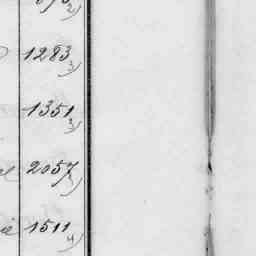 2)
1283
3)
1351
3)
2057
)
1511
4)